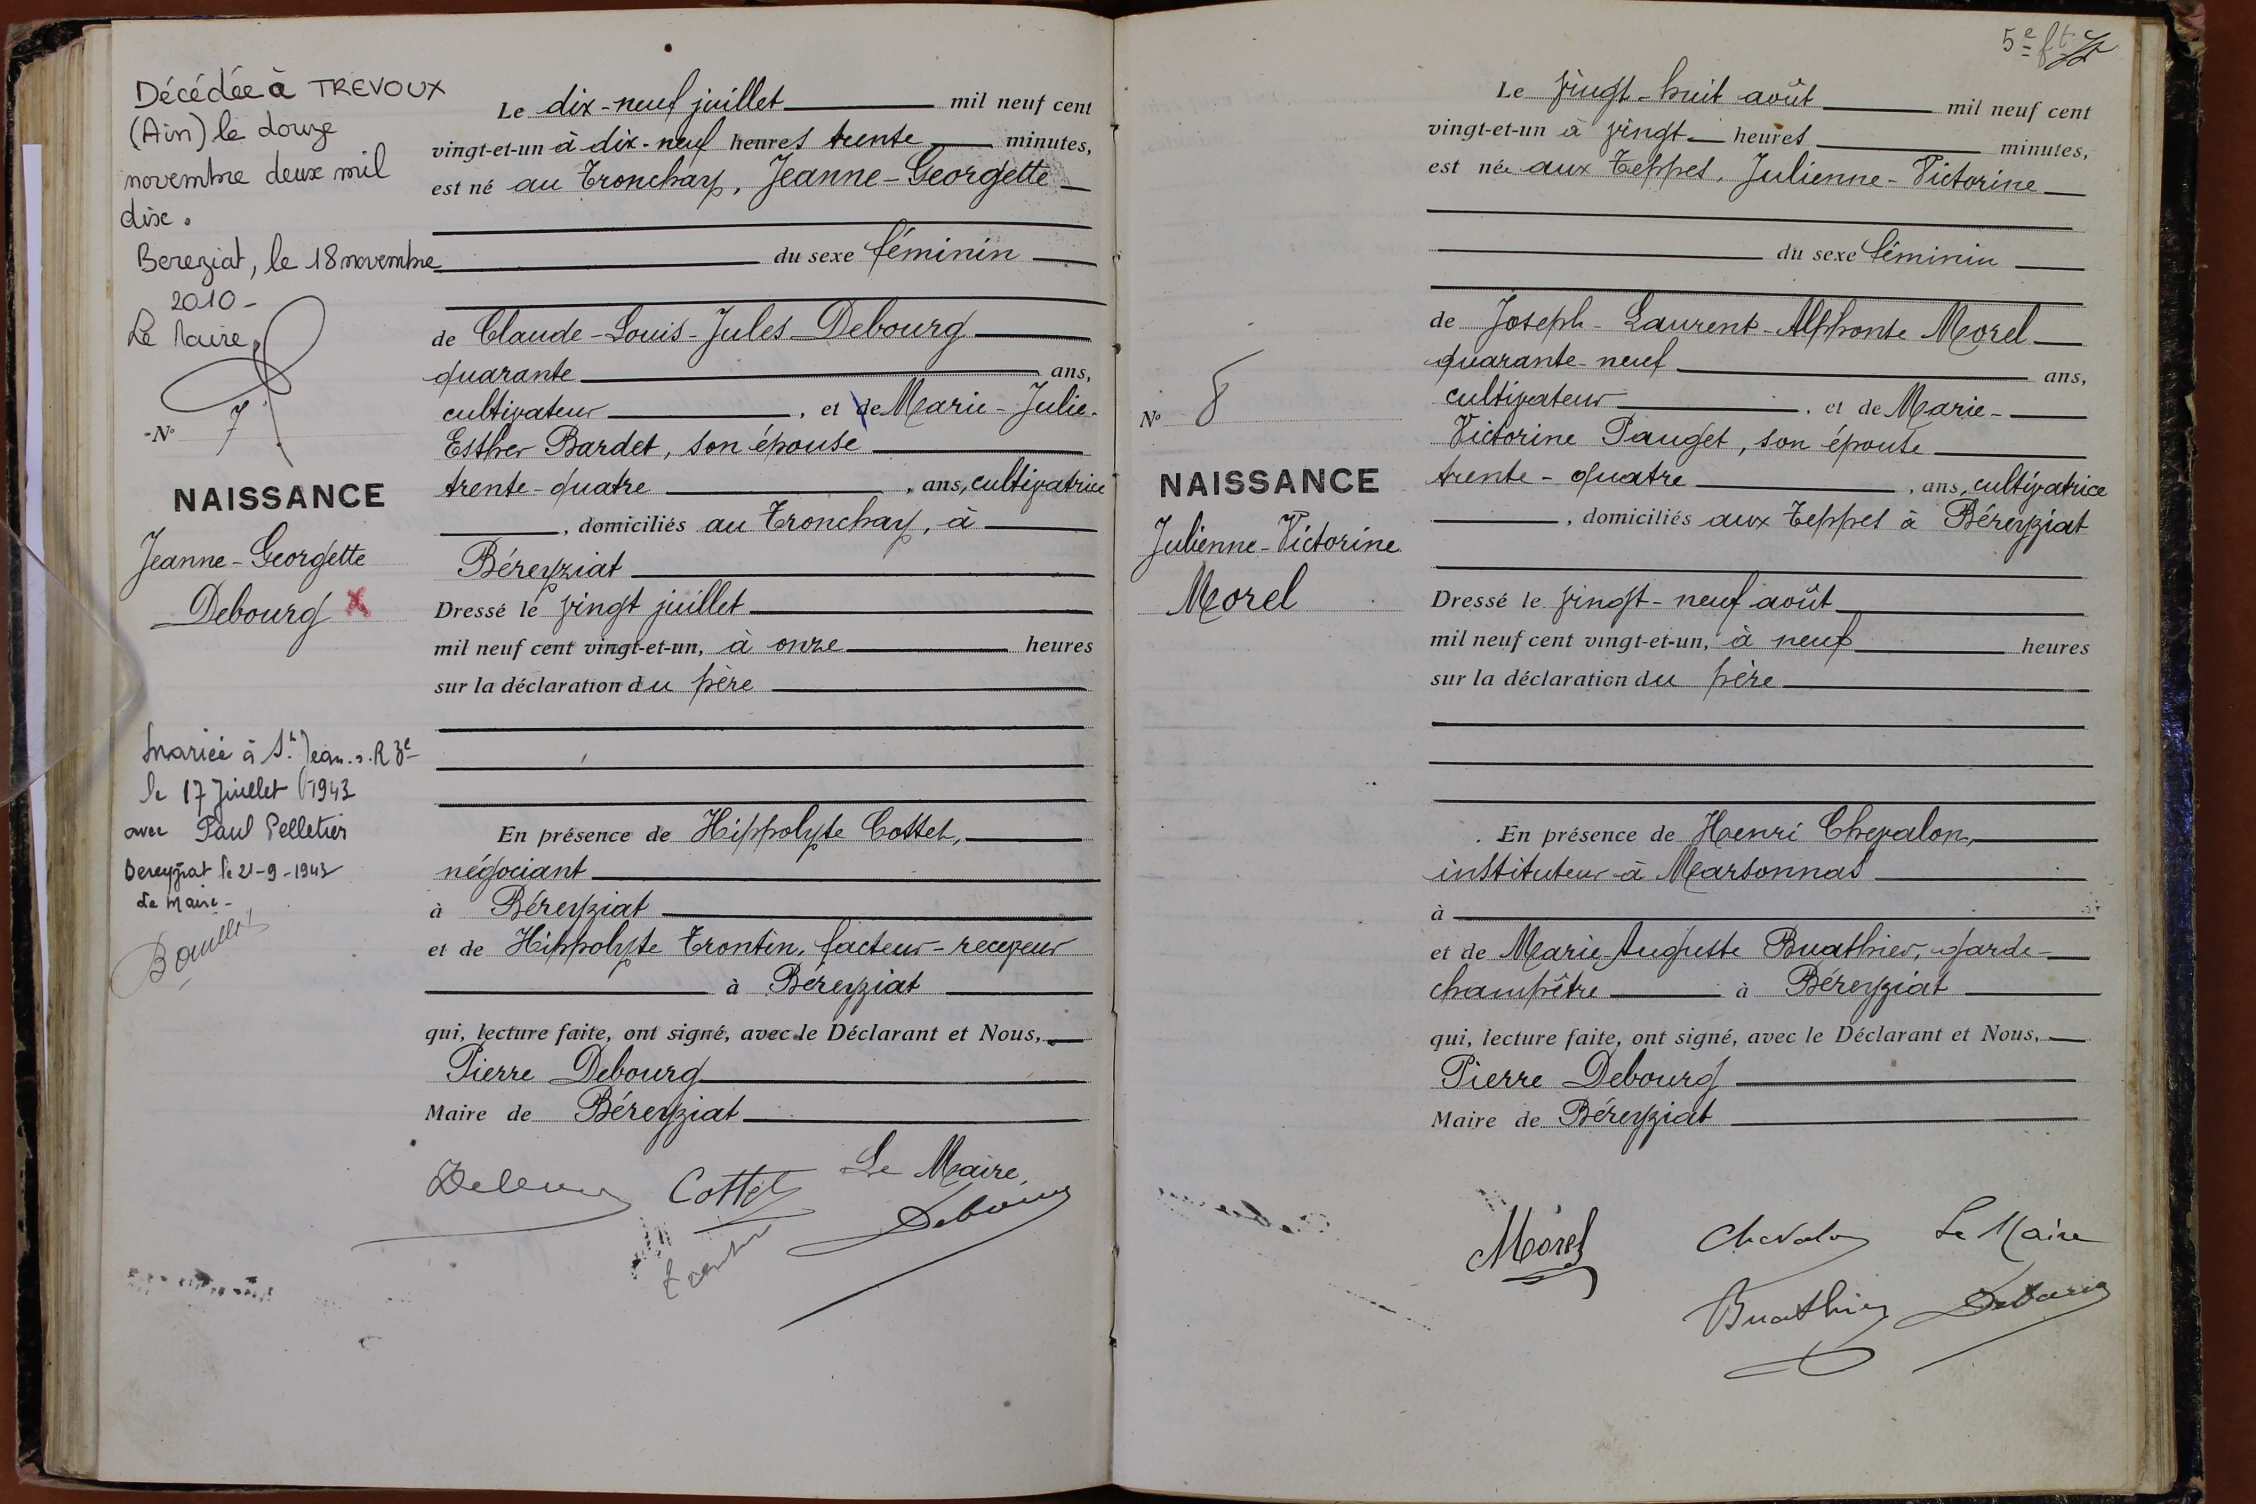 Décédée à TREVOUX
(Ain) le douze
novembre deux mil
dix.
Bereziat, le 18 novembre
2010 -
Le Maire,
N° 7
NAISSANCE
Jeanne-Georgette
Debourg X
Mariée à St. Jean. s. R ze
le 17 Juillet 1943
avec Paul Pelletier
Bereyziat le 21-9-1943
Le Maire -
Le dix-neuf juillet mil neuf cent
vingt-et-un à dix-neuf heures trente minutes,
est né au Tronchay, Jeanne-Georgette
du sexe féminin
de Claude-Louis-Jules Debourg
quarante ans,
cultivateur, et de Marie-Julie-
Esther Bardet, son épouse
trente-quatre, ans, cultivatrice
, domiciliés au Tronchay, à
Béreyziat
Dressé le vingt juillet
mil neuf cent vingt-et-un, à onze heures
sur la déclaration du père
En présence de Hippolyte Cottet,
négociant
à Béreyziat
et de Hippolyte Trontin, facteur-receveur
à Béreyziat
qui, lecture faite, ont signé, avec le Déclarant et Nous,
Pierre Debourg
Maire de Béreyziat
Le Maire,
Cottet
Debourg
5e ft
N° 8
NAISSANCE
Julienne-Victorine
Morel
Le vingt-huit août mil neuf cent
vingt-et-un à vingt heures minutes,
est née aux Teppes, Julienne-Victorine
du sexe féminin
de Joseph-Laurent-Alphonse Morel
quarante-neuf ans,
cultivateur, et de Marie-
Victorine Pauget, son épouse
trente-quatre, ans, cultivatrice
, domiciliés aux Teppes à Béreyziat
Dressé le vingt-neuf août
mil neuf cent vingt-et-un, à neuf heures
sur la déclaration du père
En présence de Henri Chevalon,
instituteur à Marsonnas
à
et de Marie Auguste Buathier, garde-
champêtre à Béreyziat
qui, lecture faite, ont signé, avec le Déclarant et Nous,
Pierre Debourg
Maire de Béreyziat
Morel Chevalon Le Maire
Buathier Debourg